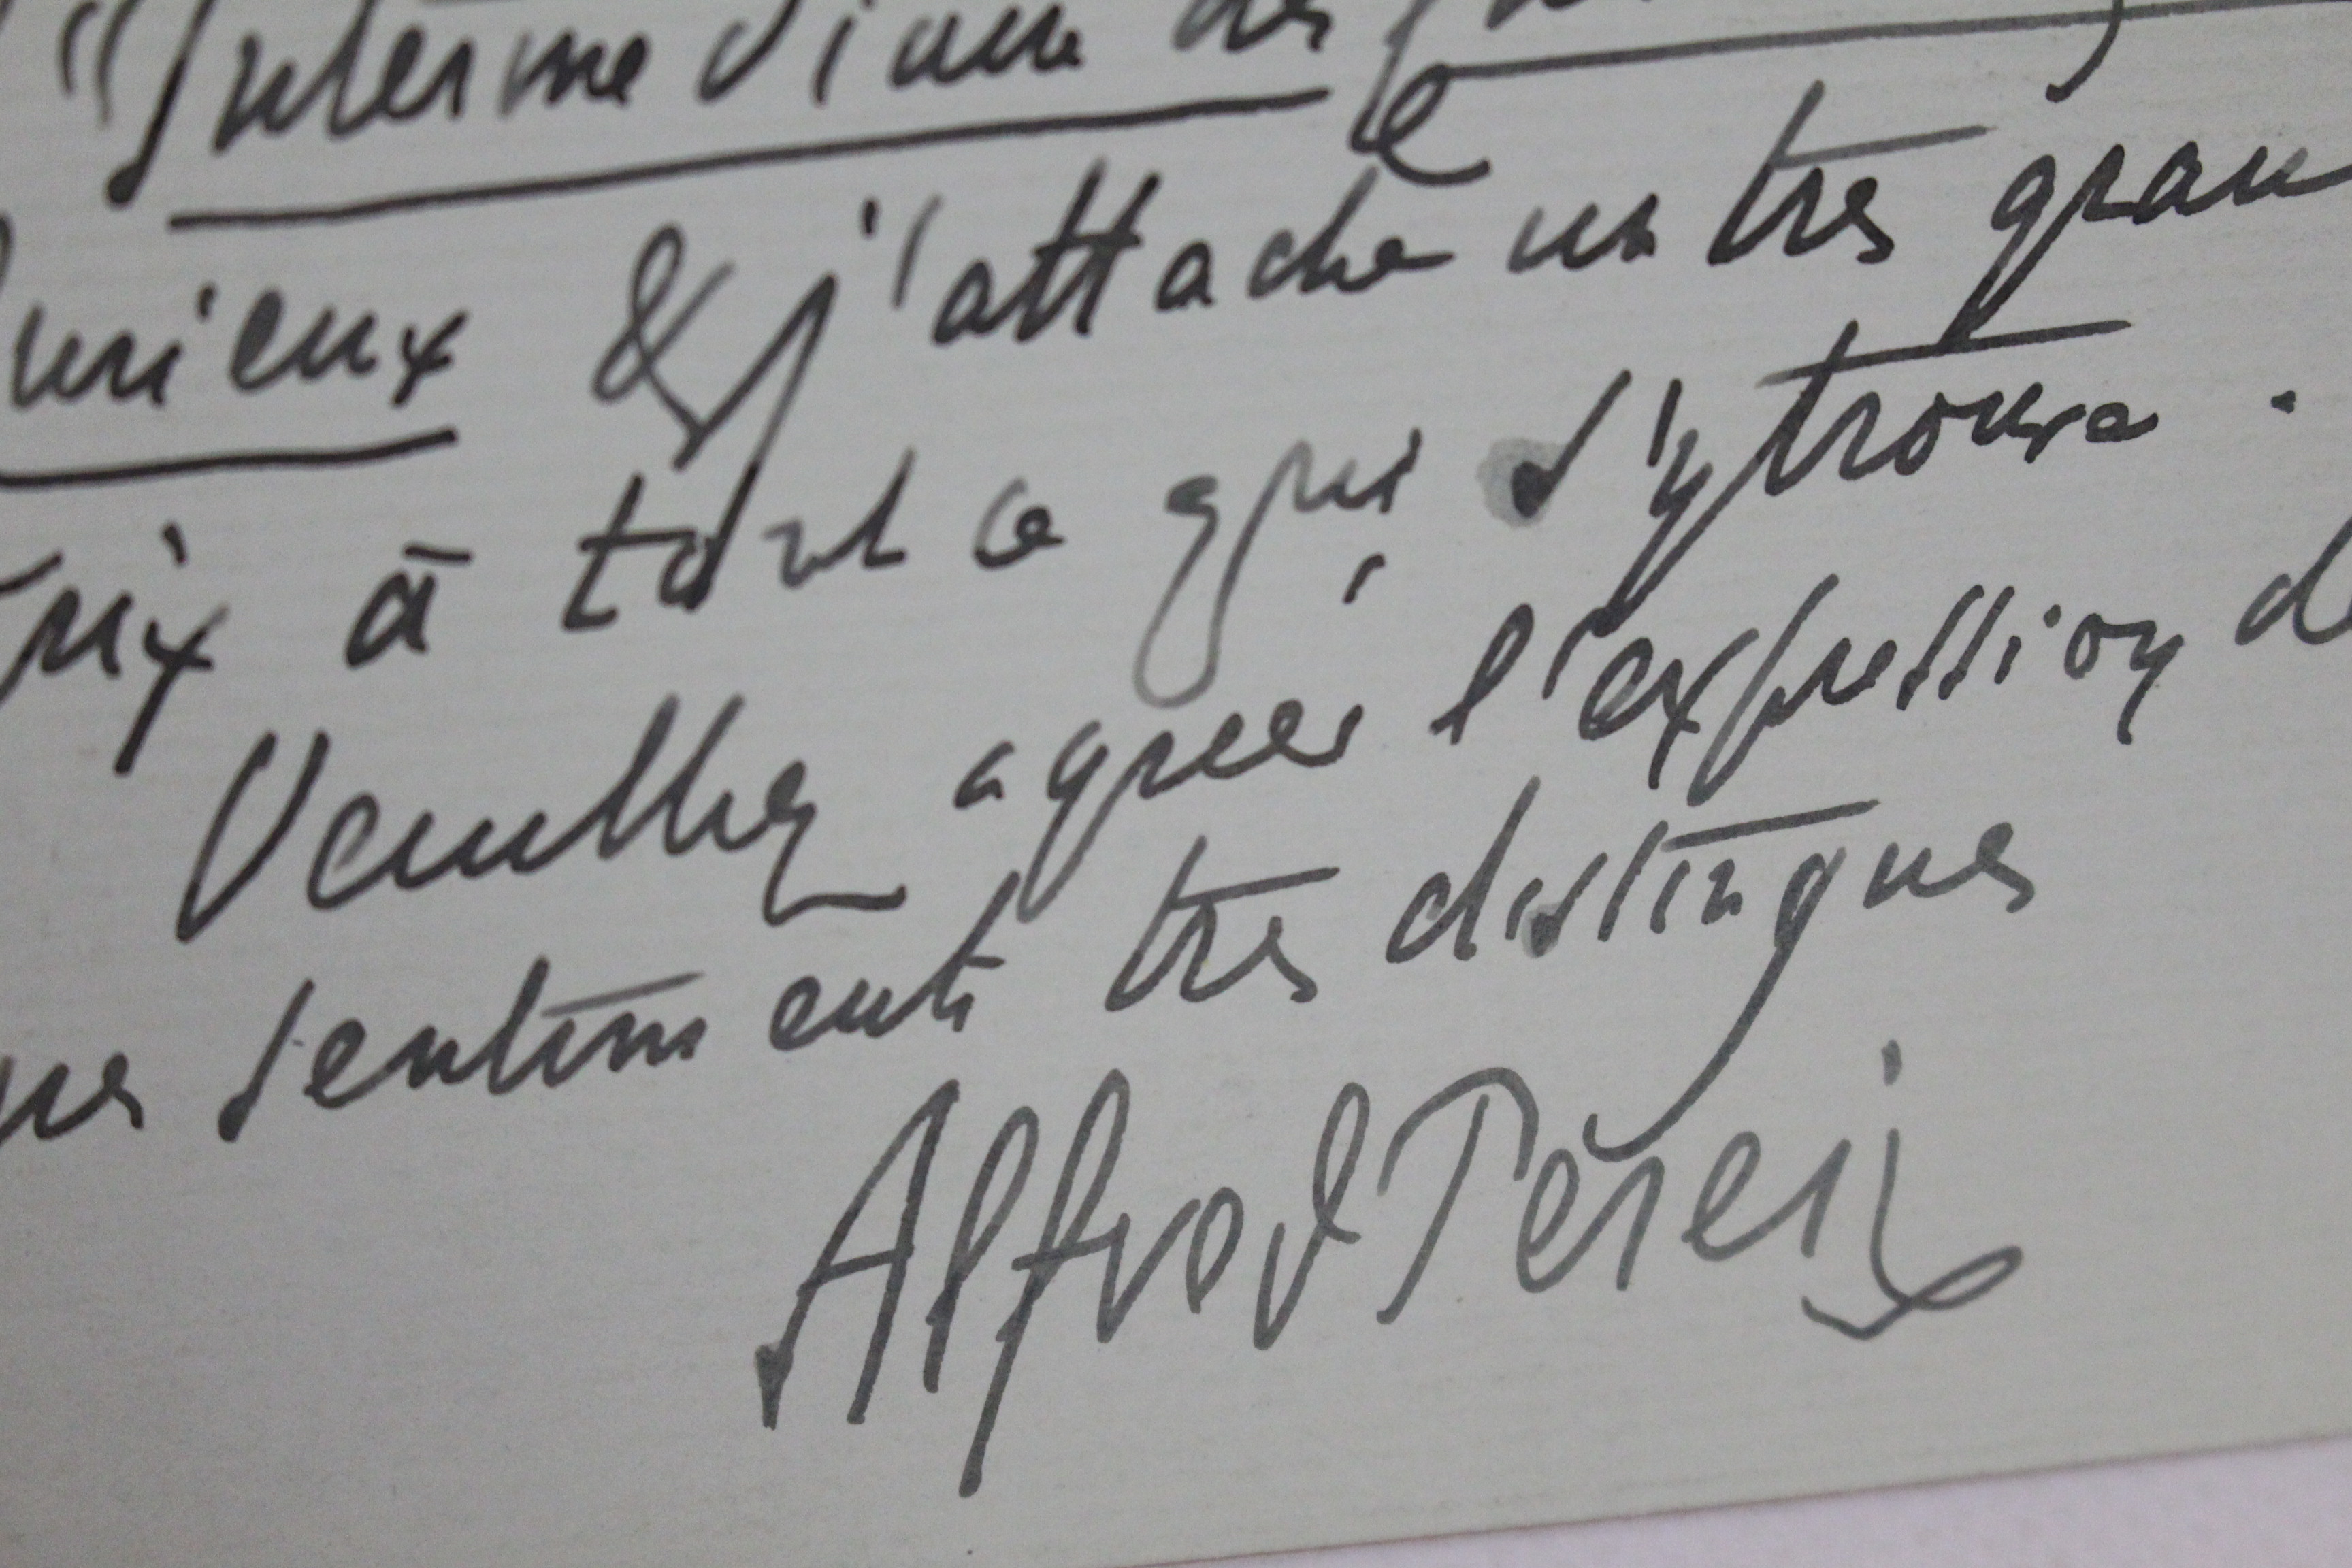 "Intermédiaire des
urieux & j'attache un très gran
rix à tout ce qui s'y trouve.
Veuillez agréer l'expression de
mes sentiments très distingués
Alfred Péreii